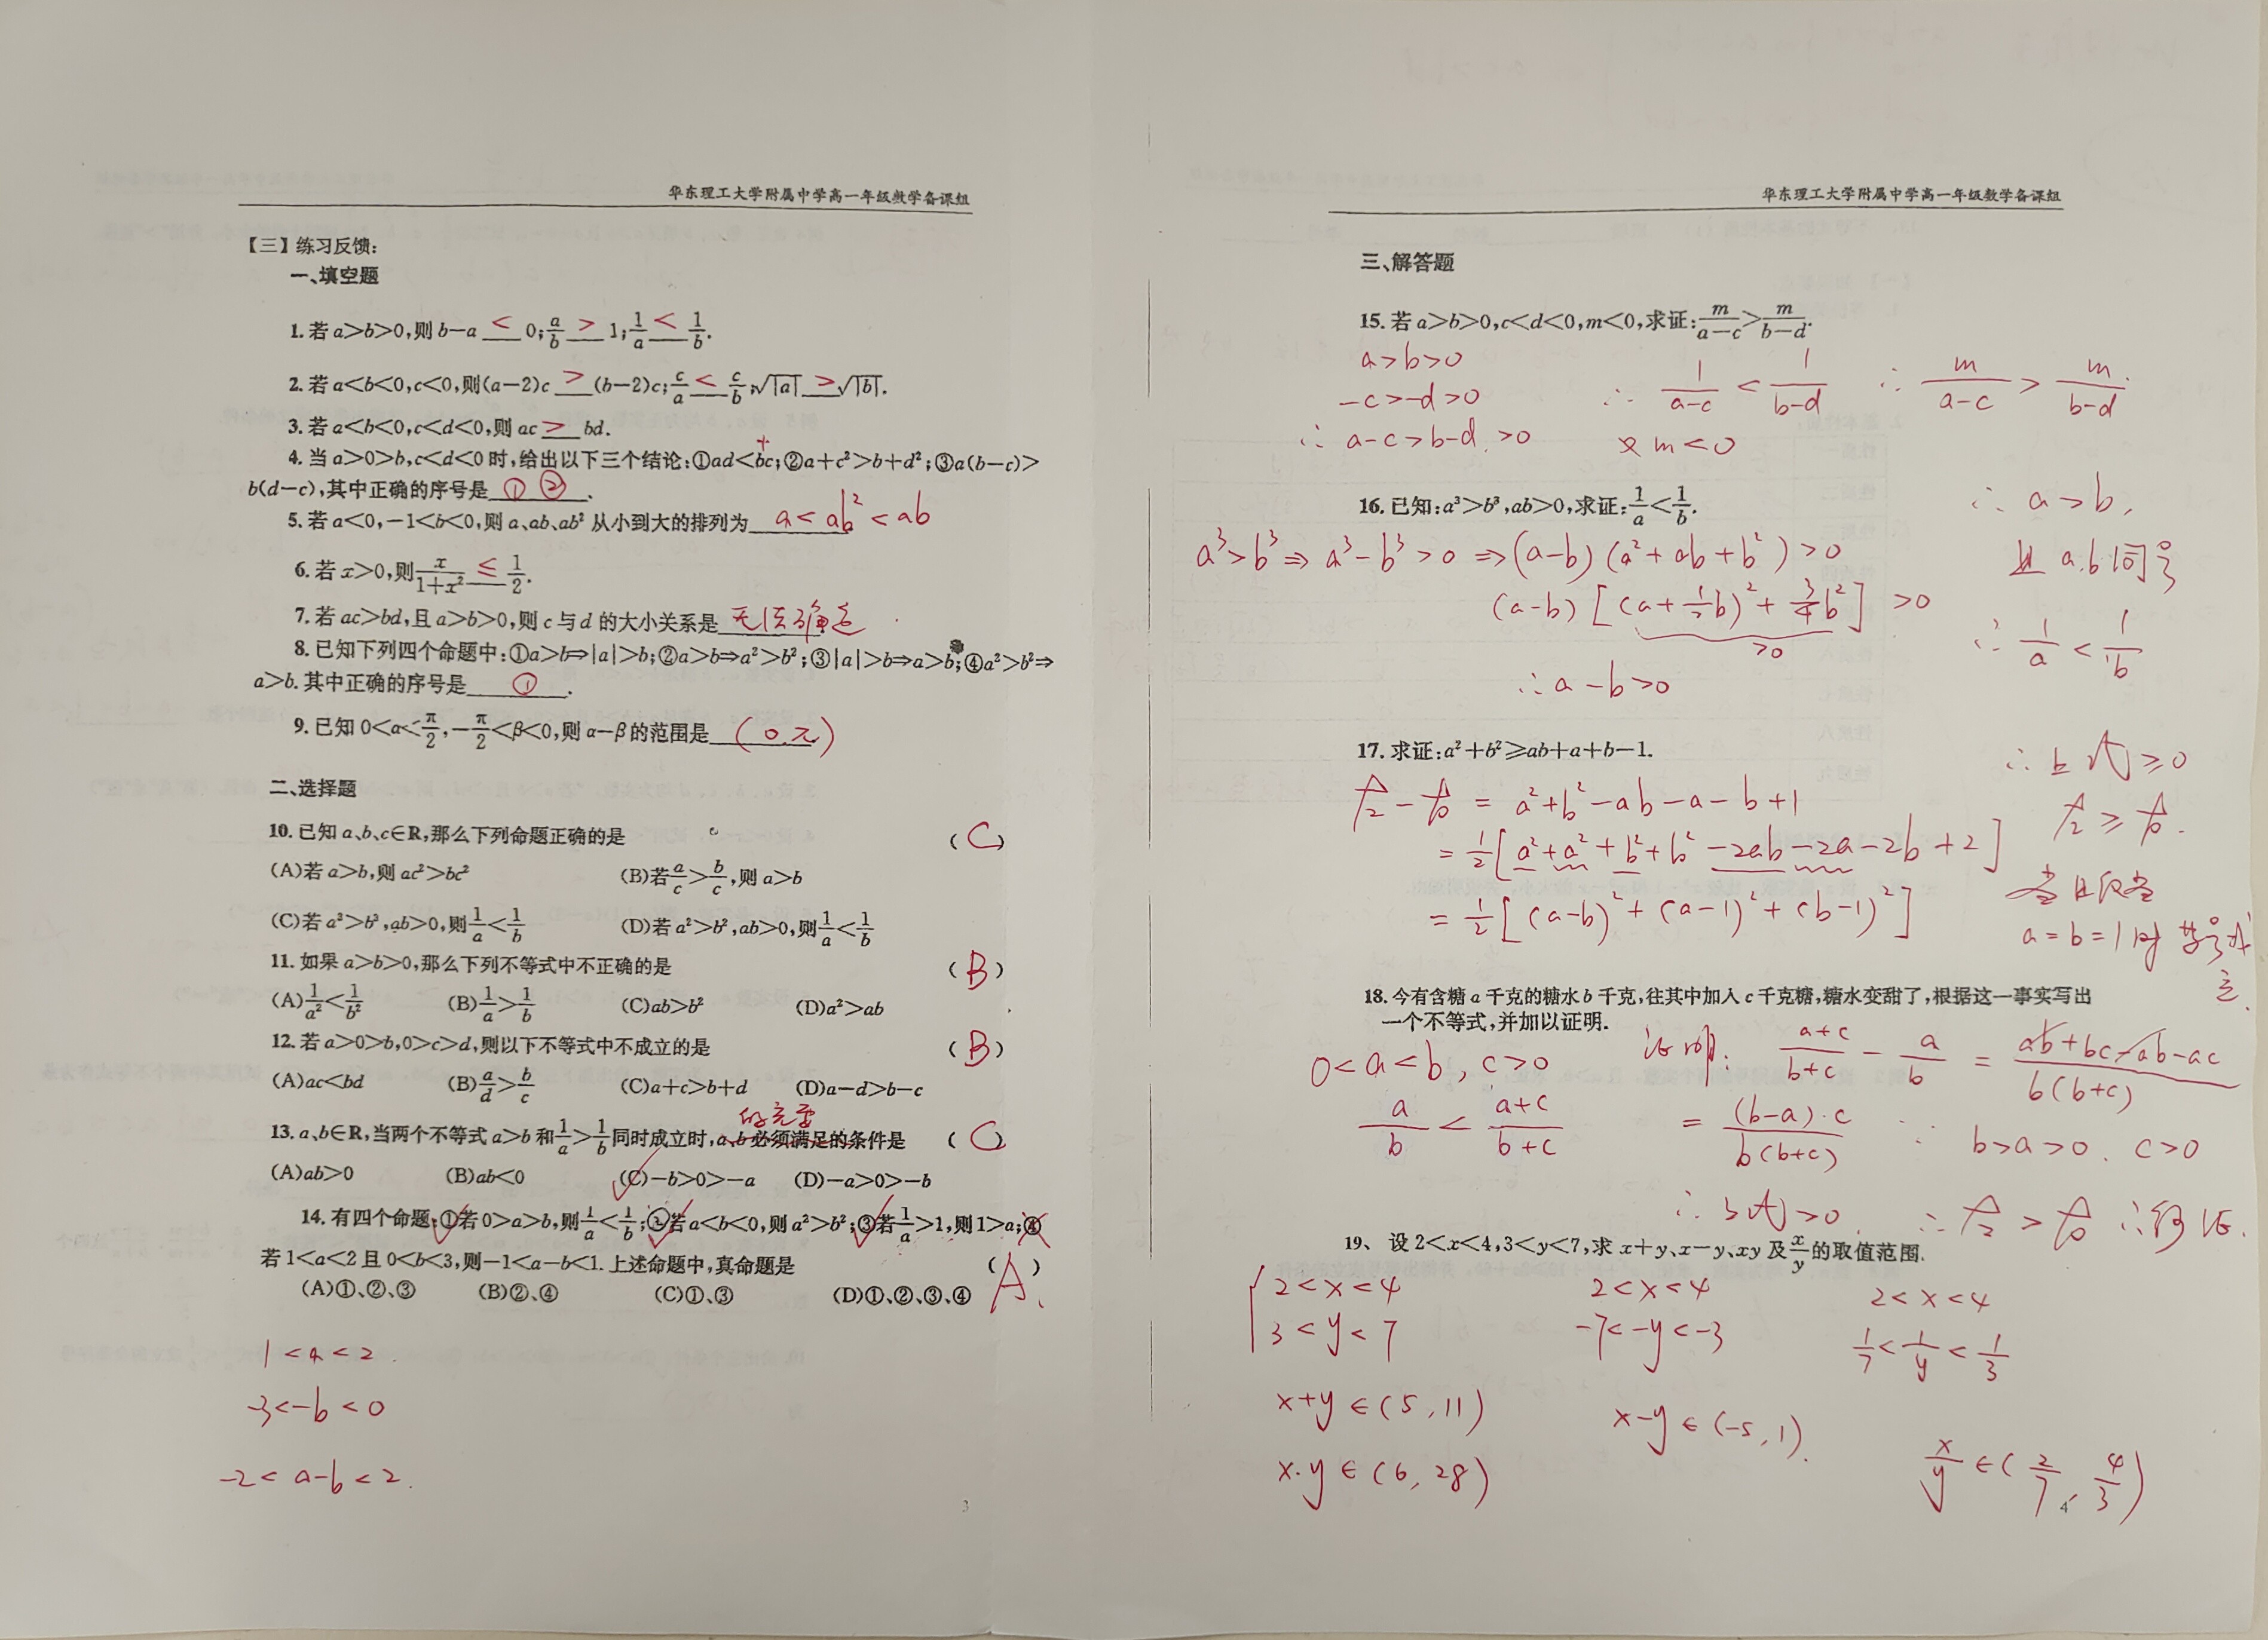 华东理工大学附属中学高一年级数学备课组
【三】练习反馈:
一、填空题
1. 若 a>b>0,则 b-a < 0; a/b > 1; 1/a < 1/b.
2. 若 a<b<0,c<0,则(a-2)c > (b-2)c; c/a < c/b; √|a| > √|b|.
3. 若 a<b<0,c<d<0,则 ac > bd.
4. 当 a>0>b,c<d<0 时,给出以下三个结论:①ad<bc;②a+c²>b+d²;③a(b-c)>
b(d-c),其中正确的序号是 ① ② .
5. 若 a<0,-1<b<0,则 a、ab、ab² 从小到大的排列为 a < ab² < ab
6. 若 x>0,则 x/(1+x²) ≤ 1/2.
7. 若 ac>bd,且 a>b>0,则 c 与 d 的大小关系是 无法确定 .
8. 已知下列四个命题中:①a>b⇒|a|>b;②a>b⇒a²>b²;③|a|>b⇒a>b;④a²>b²⇒
a>b. 其中正确的序号是 ① .
9. 已知 0<α<π/2,-π/2<β<0,则 α-β 的范围是 (0,π)
二、选择题
10. 已知 a、b、c∈R,那么下列命题正确的是 ( C )
(A)若 a>b,则 ac²>bc² (B)若 a/c>b/c,则 a>b
(C)若 a³>b³,ab>0,则 1/a<1/b (D)若 a²>b²,ab>0,则 1/a<1/b
11. 如果 a>b>0,那么下列不等式中不正确的是 ( B )
(A)1/a²<1/b² (B)1/a>1/b (C)ab>b² (D)a²>ab
12. 若 a>0>b,0>c>d,则以下不等式中不成立的是 ( B )
(A)ac<bd (B)a/d>b/c (C)a+c>b+d (D)a-d>b-c
的充要
13. a、b∈R,当两个不等式 a>b 和 1/a>1/b 同时成立时,a、b 必须满足的条件是 ( C )
(A)ab>0 (B)ab<0 (C)-b>0>-a (D)-a>0>-b
14. 有四个命题:①若 0>a>b,则 1/a<1/b;②若 a<b<0,则 a²>b²;③若 1/a>1,则 1>a;④
若 1<a<2 且 0<b<3,则-1<a-b<1. 上述命题中,真命题是 ( A )
(A)①、②、③ (B)②、④ (C)①、③ (D)①、②、③、④
1 < a < 2
-3 < -b < 0
-2 < a-b < 2.
3
华东理工大学附属中学高一年级数学备课组
三、解答题
15. 若 a>b>0,c<d<0,m<0,求证: m/(a-c) > m/(b-d).
a > b > 0
-c > -d > 0
∴ a-c > b-d > 0
∴ 1/(a-c) < 1/(b-d)
又 m < 0
∴ m/(a-c) > m/(b-d).
16. 已知:a³>b³,ab>0,求证: 1/a<1/b.
a³ > b³ ⇒ a³ - b³ > 0 ⇒ (a-b)(a²+ab+b²) > 0
(a-b)[(a+1/2b)²+3/4b²] > 0
>0
∴ a-b > 0
∴ a > b,
且 a.b 同号
∴ 1/a < 1/b
17. 求证:a²+b²≥ab+a+b-1.
左 - 右 = a²+b²-ab-a-b+1
= 1/2[a²+a²+b²+b²-2ab-2a-2b+2]
= 1/2[(a-b)²+(a-1)²+(b-1)²]
∴ 上式 ≥ 0
左 ≥ 右.
当且仅当
a = b = 1 时 等号成
立.
18. 今有含糖 a 千克的糖水 b 千克,往其中加入 c 千克糖,糖水变甜了,根据这一事实写出
一个不等式,并加以证明.
0 < a < b, c > 0
a/b < (a+c)/(b+c)
证明: (a+c)/(b+c) - a/b = (ab+bc-ab-ac)/(b(b+c))
= (b-a)·c/(b(b+c)) ∵ b > a > 0. c > 0
∴ 上式 > 0. ∴ 左 > 右 ∴ 得证.
19、 设 2<x<4,3<y<7,求 x+y、x-y、xy 及 x/y 的取值范围.
2 < x < 4
3 < y < 7
x+y ∈ (5, 11)
x·y ∈ (6, 28)
2 < x < 4
-7 < -y < -3
x-y ∈ (-5, 1).
2 < x < 4
1/7 < 1/y < 1/3
x/y ∈ (2/7, 4/3)
4